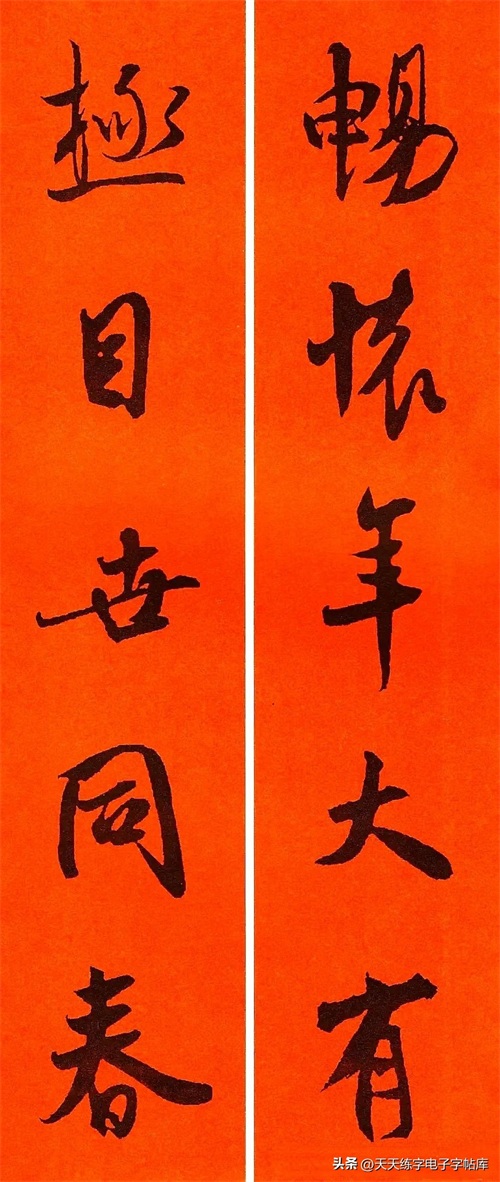 暢懷年大有
極目世同春
头条 @天天练字电子字帖库